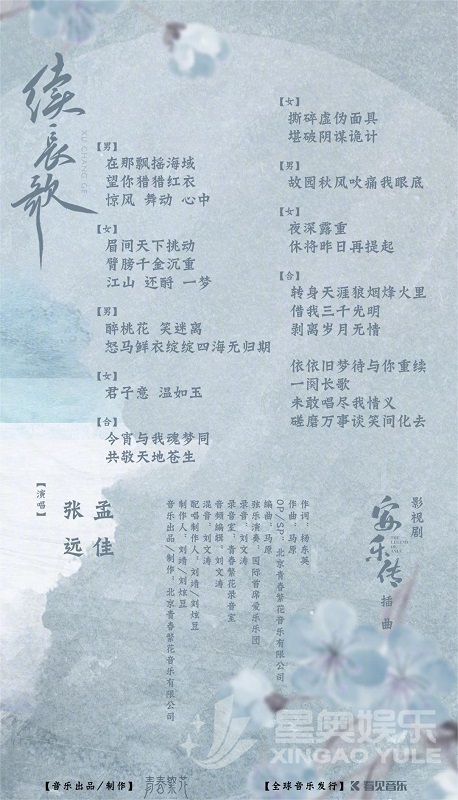 续长歌
XU CHANG GE
【男】
在那飘摇海域
望你猎猎红衣
惊风 舞动 心中
【女】
眉间天下挑动
臂膀千金沉重
江山 还酹 一梦
【男】
醉桃花 笑迷离
怒马鲜衣绽绽四海无归期
【女】
君子意 温如玉
【合】
今宵与我魂梦同
共敬天地苍生
【女】
撕碎虚伪面具
堪破阴谋诡计
【男】
故园秋风吹痛我眼底
【女】
夜深露重
休将昨日再提起
【合】
转身天涯狼烟烽火里
借我三千光明
剥离岁月无情
依依旧梦待与你重续
一阕长歌
未敢唱尽我情义
磋磨万事谈笑间化去
影视剧
安乐传
插曲
作词：杨东英
作曲：马原
OP/SP：北京青春繁花音乐有限公司
编曲：马原
弦乐演奏：国际首席爱乐乐团
录音：刘文涛
录音室：青春繁花录音室
音频编辑：刘文涛
混音：刘文涛
配唱制作人：刘靖/刘炫豆
制作人：刘靖/刘炫豆
音乐出品/制作：北京青春繁花音乐有限公司
【演唱】
孟佳
张远
星奥娱乐
XINGAO YULE
【音乐出品/制作】 青春繁花 【全球音乐发行】 看见音乐